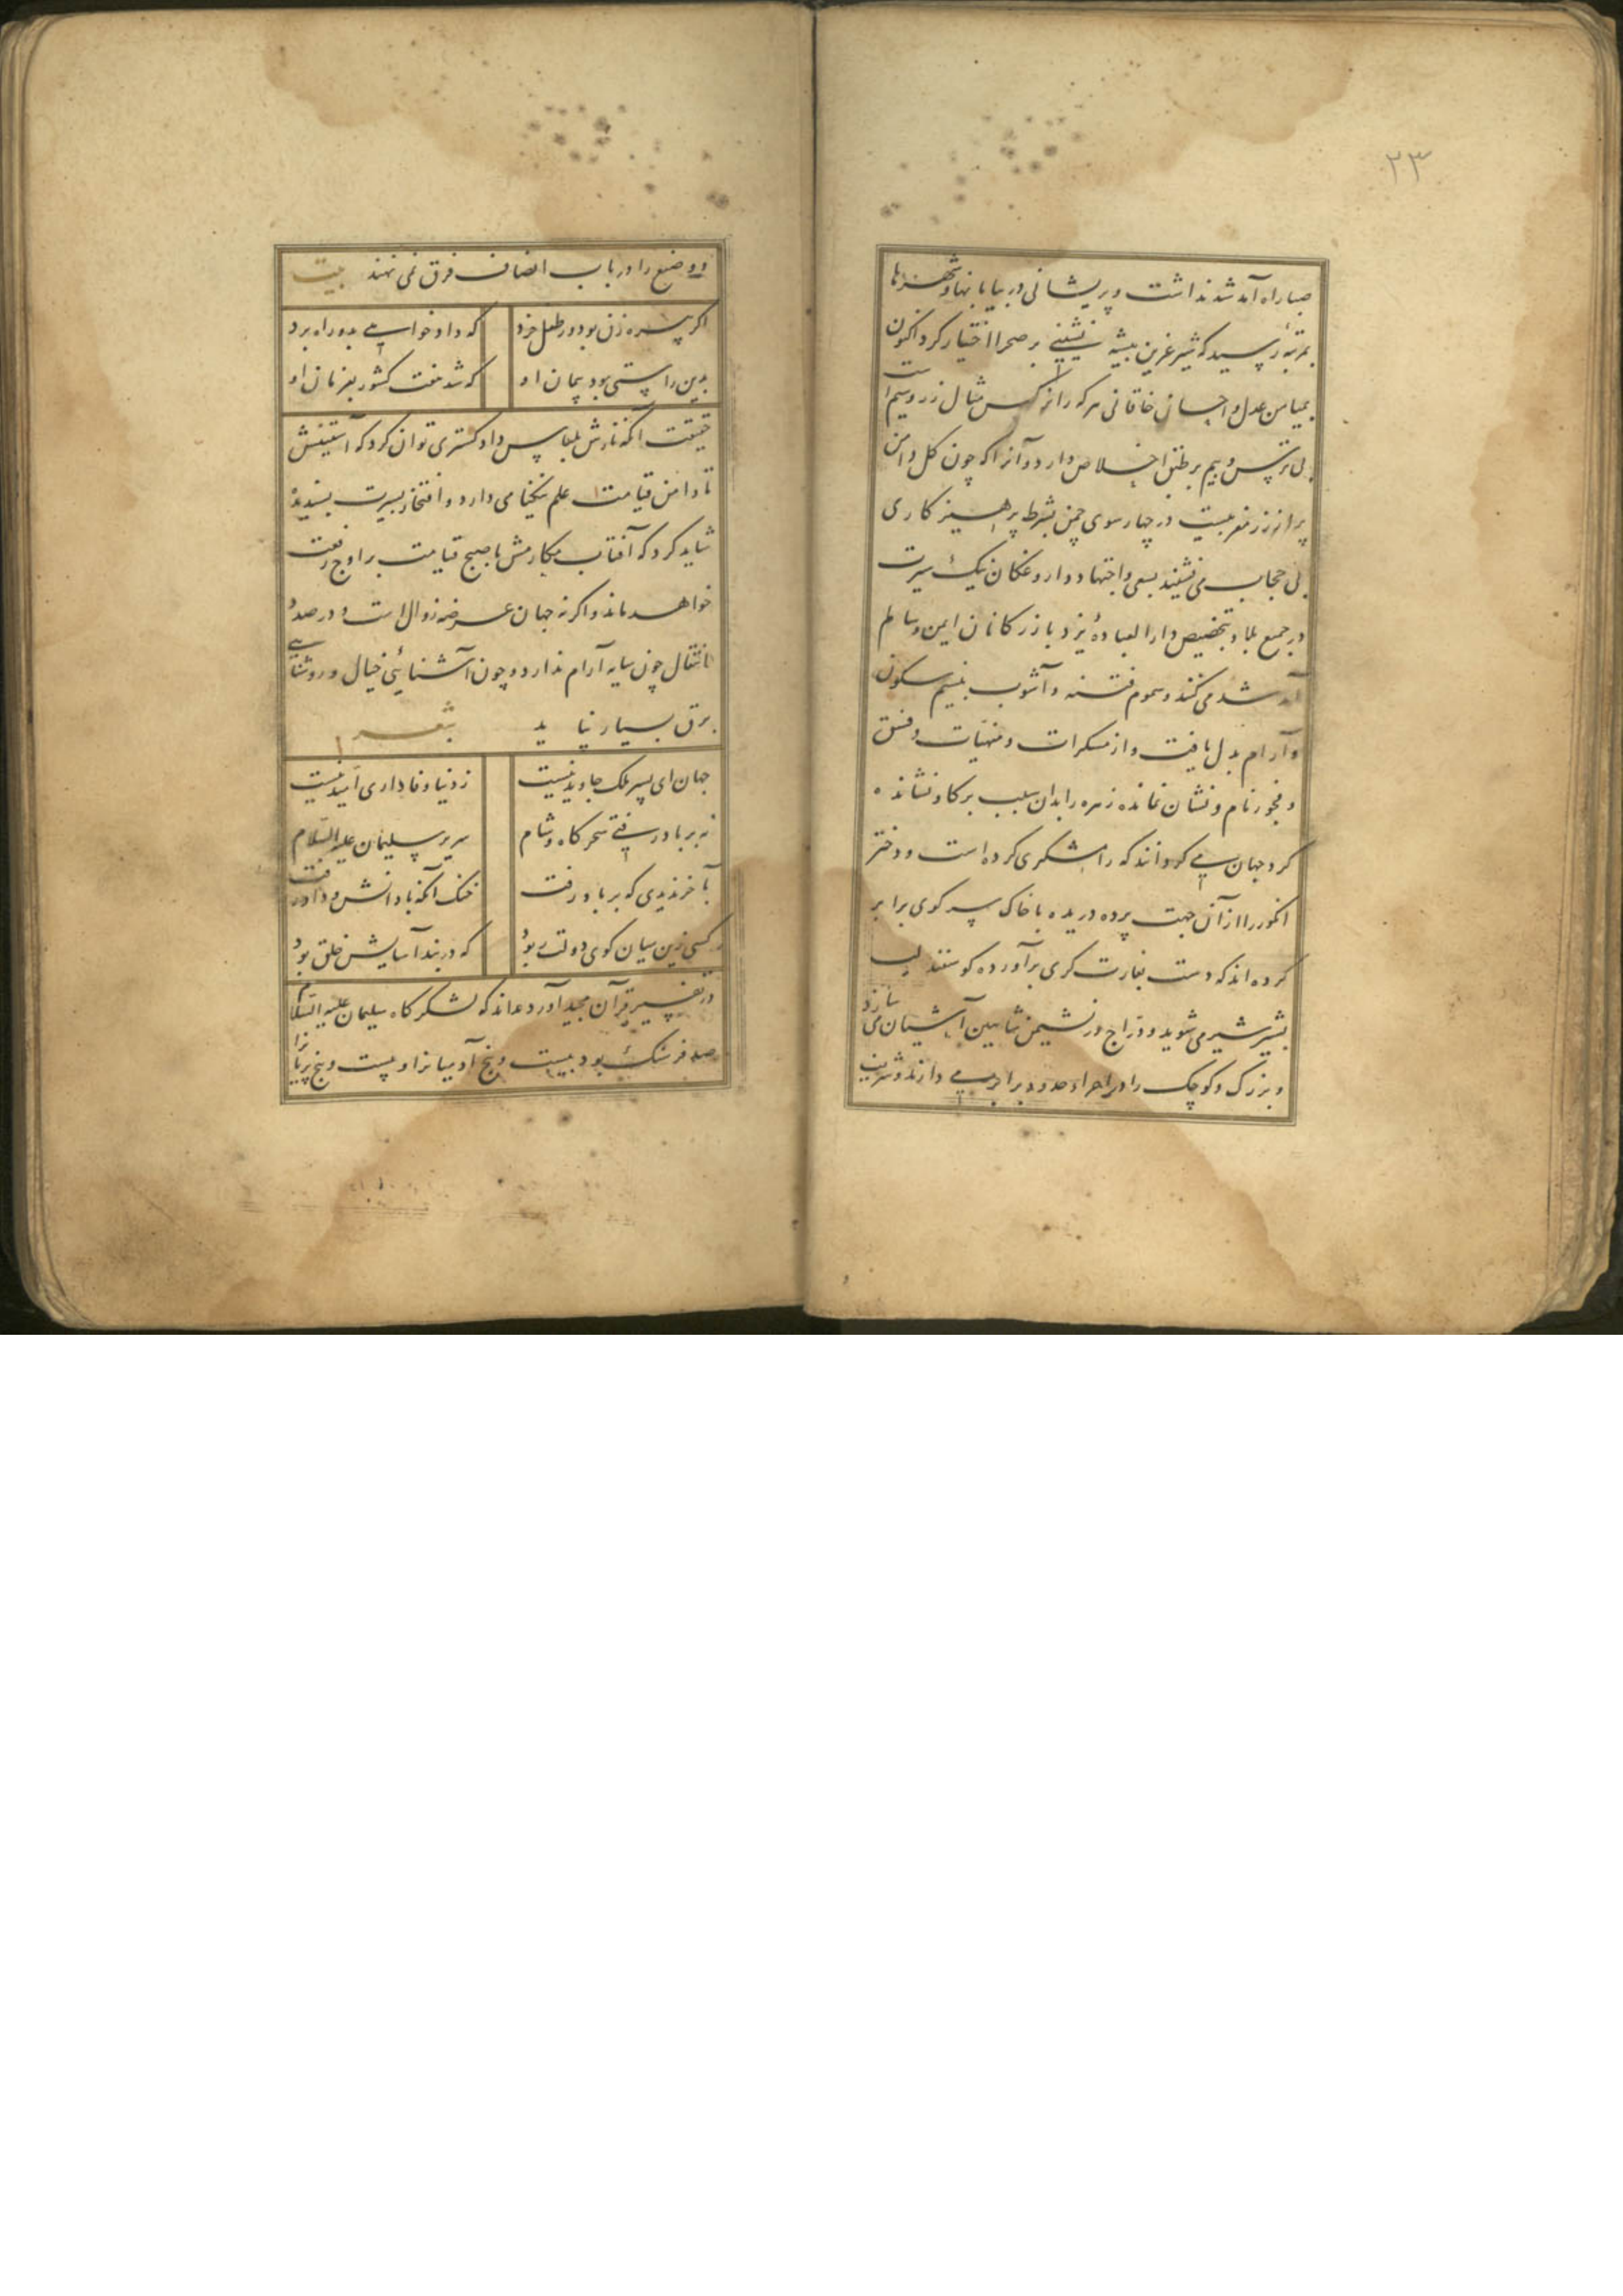 ۲۳
صبا راه آمد شد نداشت و پریشانی در بیابانها و شهرها
بمرتبه رسید که شیر غرین بیشه نشینی بر صحرا اختیار کرد اکنون
بمیامن عدل و احسان خاقانی هر که را نرگس مثال زر و سیم است
بی ترس و بیم بر طبق اخلاص دارد و آنرا که چون گل دامن
پر از زر مغربیست در چهار سوی چمن بشرط پرهیز کاری
بی حجاب می نشیند بسعی و اجتهاد داروغکان نیک سیرت
در جمیع بلاد بتخصیص دار العباده یزد بازرگانان ایمن و سالم
آمد شد می کنند و سموم فتنه و آشوب بنسیم سکون
و آرام بدل یافت و از مسکرات و منهیات و فسق
و فجور نام و نشان نمانده زهره را بدان سبب بر گاو نشانده
گرد جهان می گردانند که رامشگری کرده است و دختر
انگور را از آن جهت پرده دریده با خاک سر کوی برابر
کرده اند که دست بغارت گری برآورده گوسفند لب
بشیر شیر می شوید و دراج در نشیمن شاهین آشیان می سازد
و بزرگ و کوچک را در اجراء حدود برابر می دارند و شریف
و وضیع را در باب انصاف فرق نمی نهند بیت
اگر پیره زن بود ور طفل خرد که داد خواهی بدو راه برد
بدین راستی بود پیمان او که شد هفت کشور بفرمان او
حقیقت آنکه نازش بلباس داد گستری توان کرد که آستینش
تا دامن قیامت علم نیکنامی دارد و افتخار بسیرت پسندیده
شاید کرد که آفتاب مکارمش تا صبح قیامت بر اوج رفعت
خواهد ماند و اگر نه جهان عرضه زوال است و در صدد
انتقال چون سایه آرام ندارد و چون آشنائی خیال و روشنایی
برق بسیار نپاید شعر
جهان ای پسر ملک جاوید نیست ز دنیا وفاداری امید نیست
نه بر باد رفتی سحرگاه و شام سریر سلیمان علیه السلام
بآخر ندیدی که بر باد رفت خنک آنکه با دانش و داد رفت
کسی زین میان گوی دولت ربود که در بند آسایش خلق بود
در تفسیر قرآن مجید آورده اند که لشکر گاه سلیمان علیه السلام
صد فرسنگ بود بیست و پنج آدمیانرا و بیست و پنج پریانرا